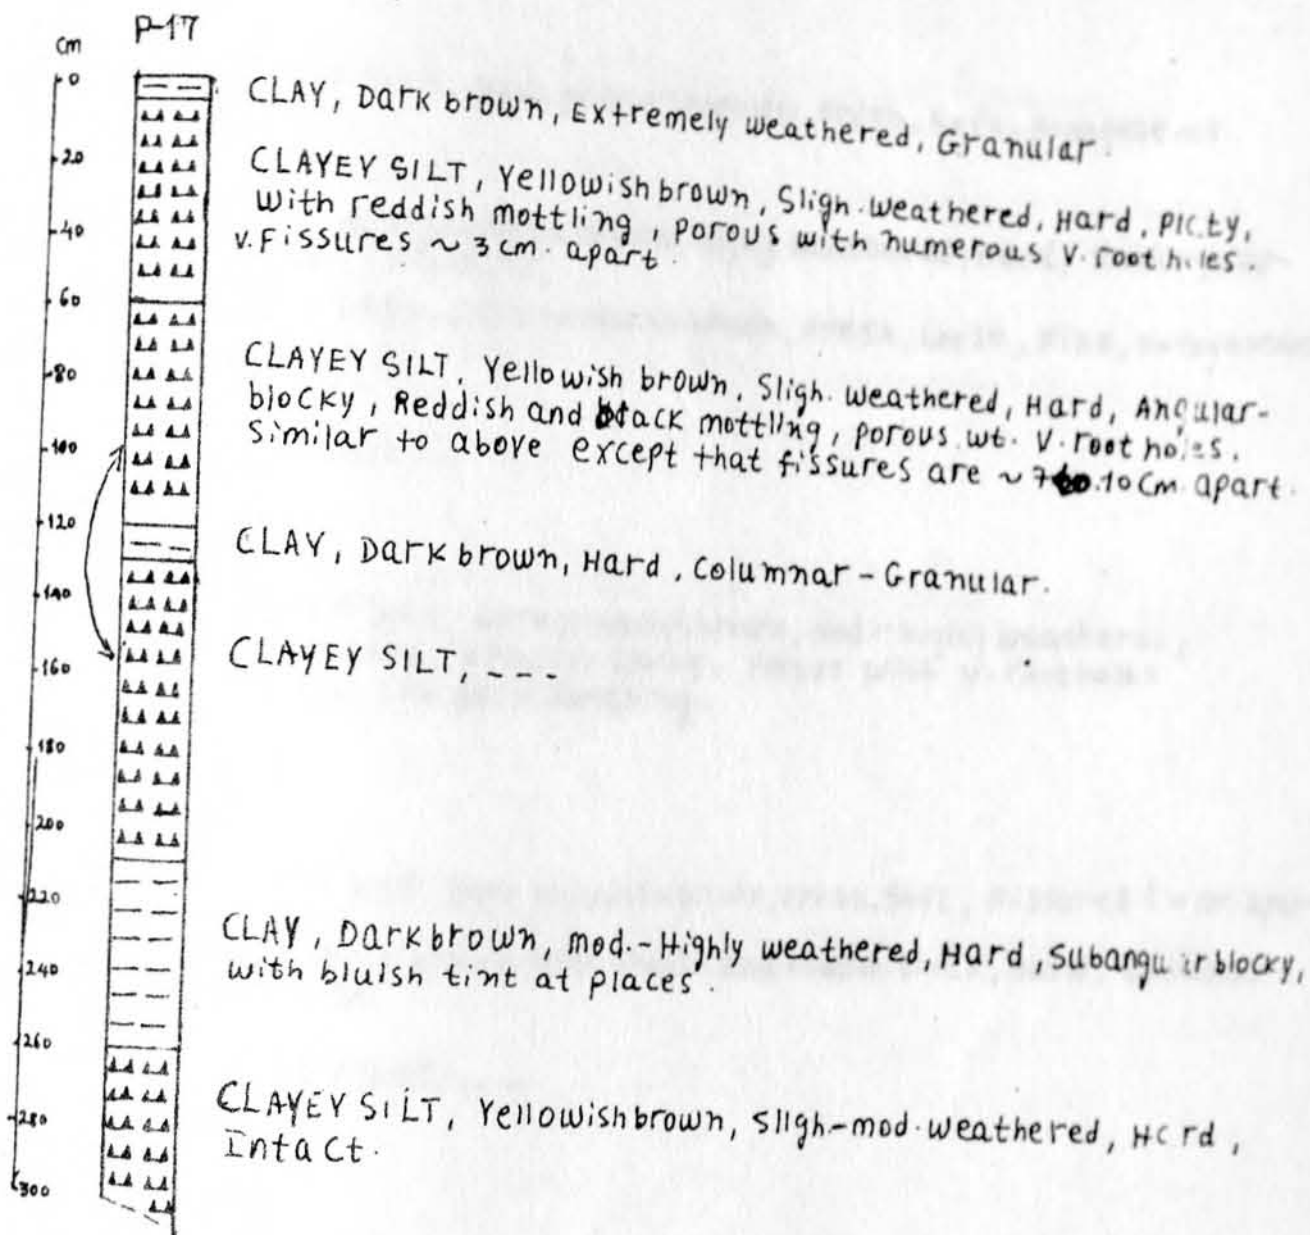 P-17
cm
0
20
40
60
80
100
120
140
160
180
200
220
240
260
280
300
CLAY, Dark brown, Extremely weathered, Granular.
CLAYEY SILT, Yellowish brown, Sligh. weathered, Hard,
with reddish mottling, porous with numerous v. root holes.
v. Fissures ~ 3 cm. apart.
CLAYEY SILT, Yellowish brown, Sligh. weathered, Hard, Angular-
blocky, Reddish and black mottling, porous wt. v. root holes.
Similar to above except that fissures are ~ 7 to 10 cm. apart.
CLAY, Dark brown, Hard, Columnar - Granular.
CLAYEY SILT, - - -
CLAY, Dark brown, mod.-Highly weathered, Hard, Subangular blocky,
with bluish tint at places.
CLAYEY SILT, Yellowish brown, sligh-mod. weathered, Hard,
Intact.